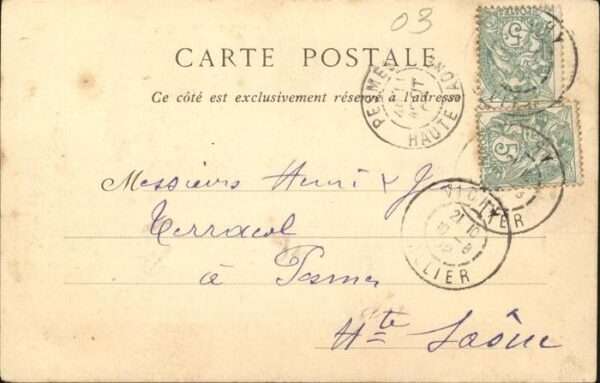 03
CARTE POSTALE
Ce côté est exclusivement réservé à l'adresse
PESMES HAUTE SAONE
AOUT
5
5
Messieurs Henri &
Terracol
à Pesmes
Hte Saône
VICHY
21 10
ALLIER